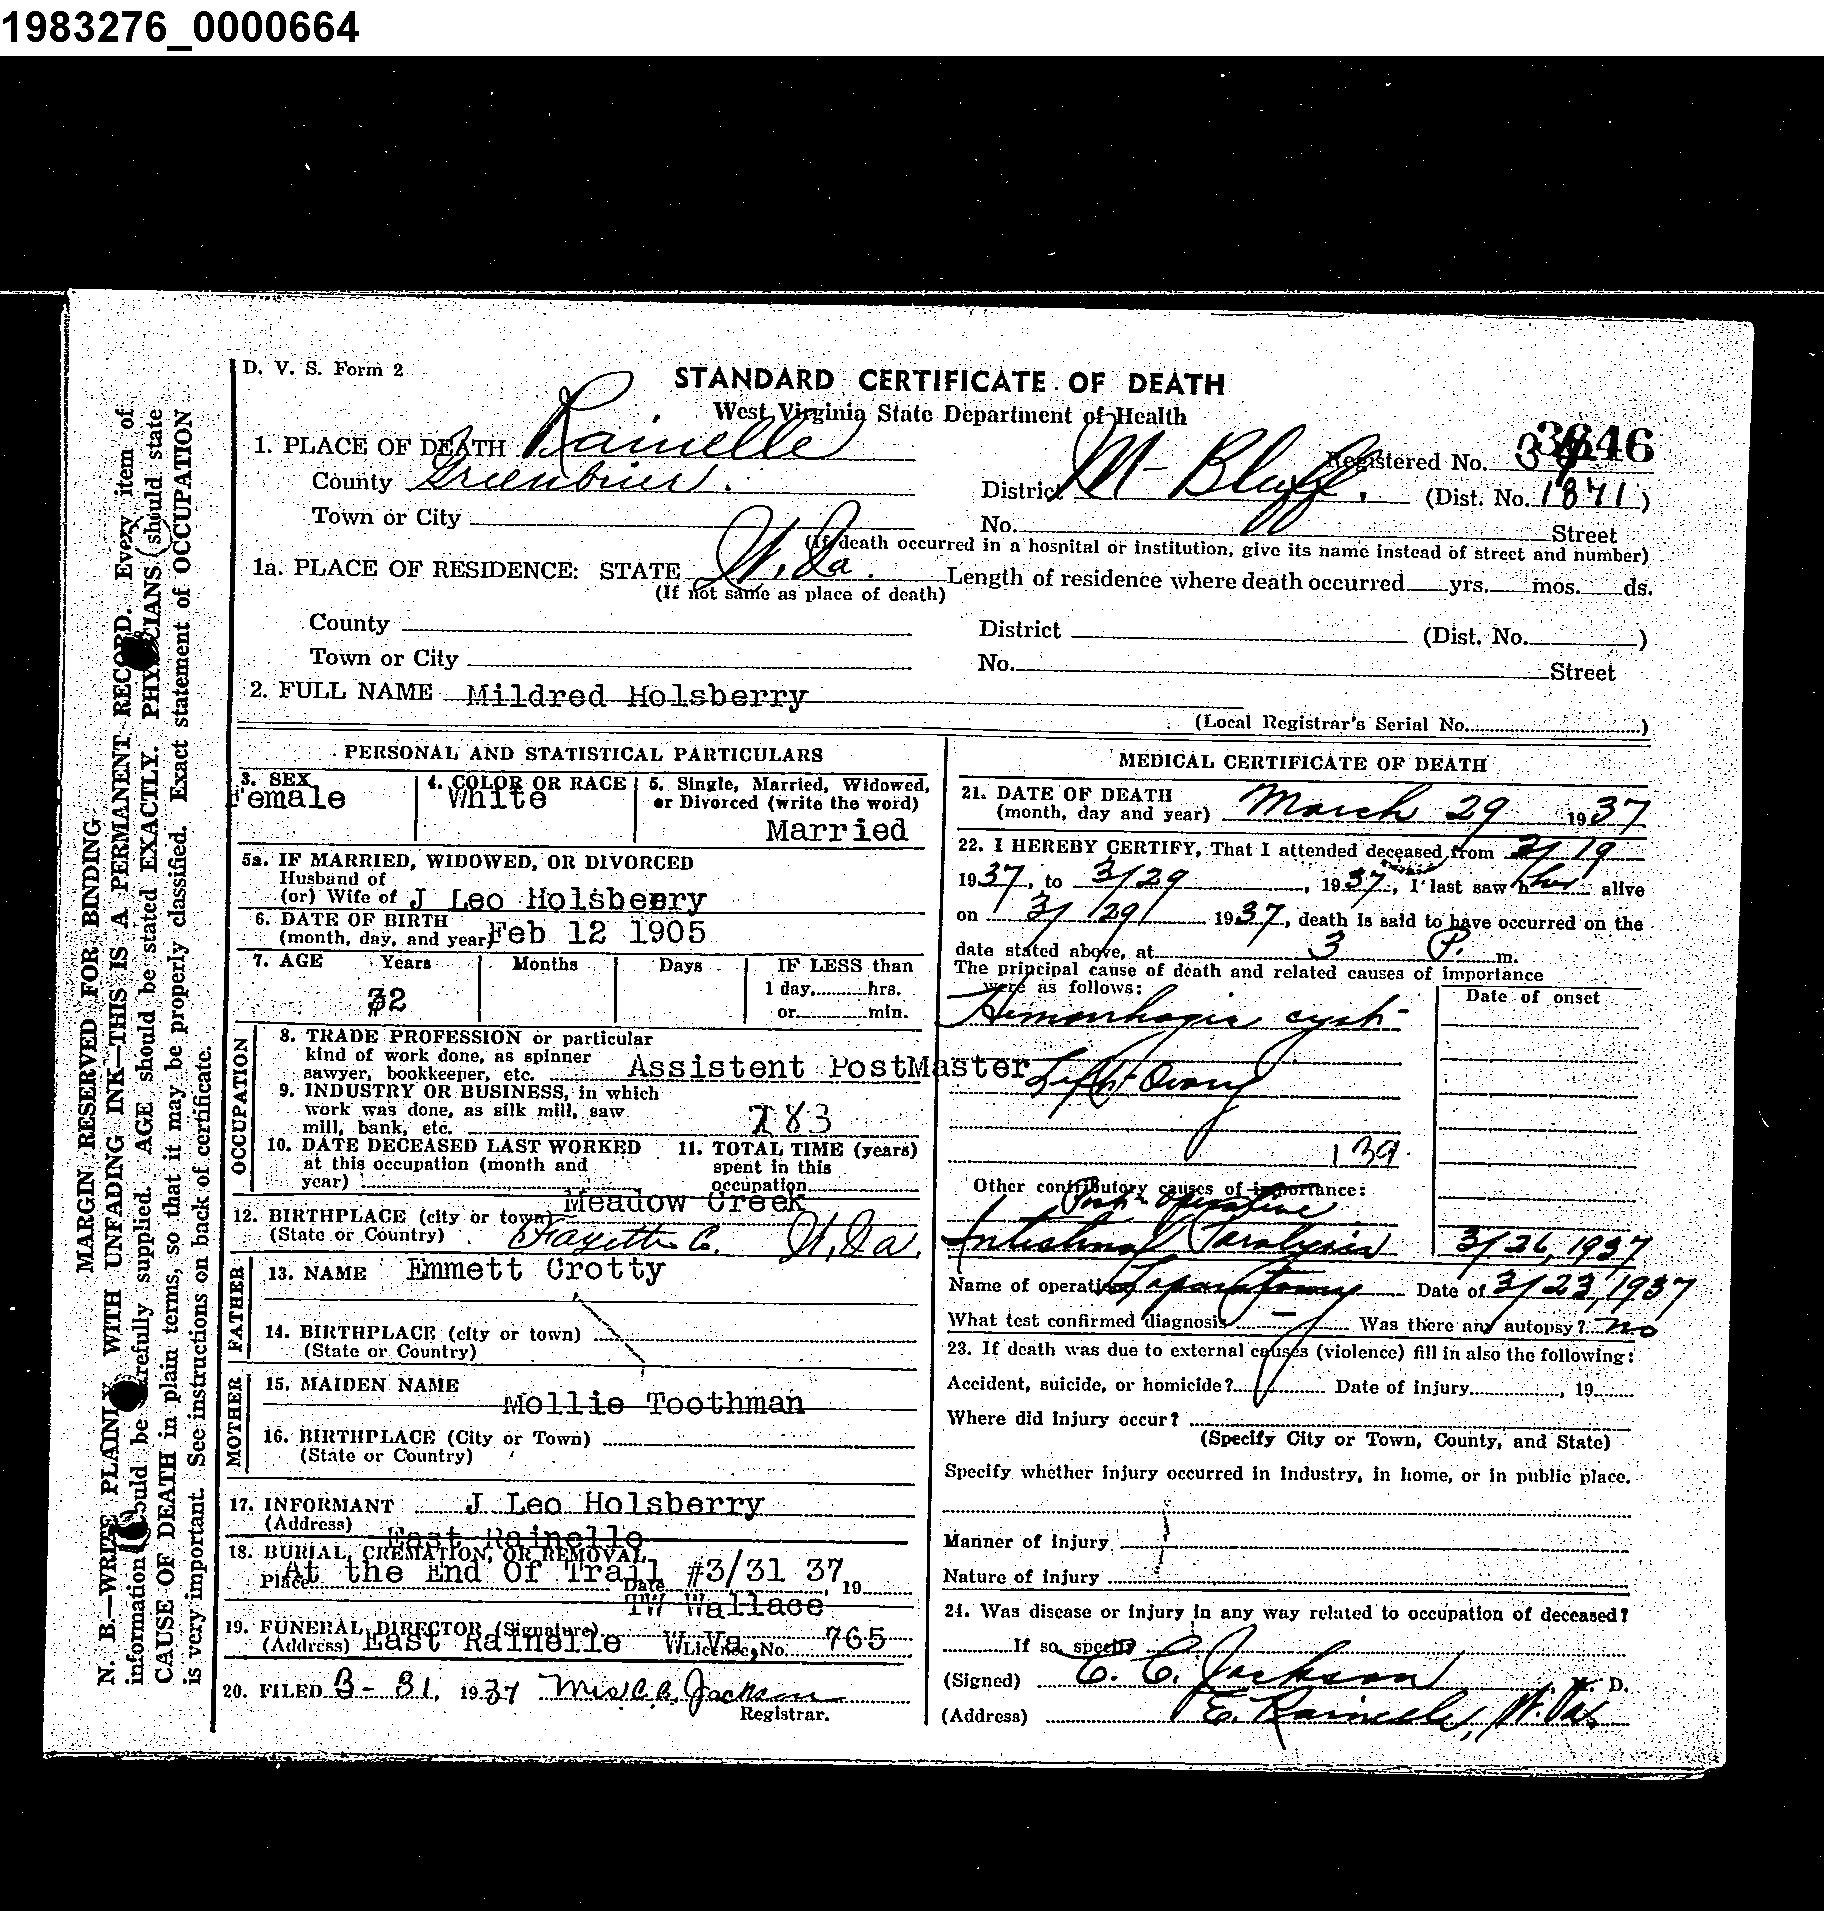 1983276_0000664
D. V. S. Form 2
STANDARD CERTIFICATE OF DEATH
West Virginia State Department of Health
1. PLACE OF DEATH Rainelle
Registered No. 3646
County Greenbrier.
District M- Bluff. (Dist. No. 1871)
Town or City
No. Street
(If death occurred in a hospital or institution, give its name instead of street and number)
1a. PLACE OF RESIDENCE: STATE W. Va. Length of residence where death occurred yrs. mos. ds.
(If not same as place of death)
County District (Dist. No. )
Town or City No. Street
2. FULL NAME Mildred Holsberry
(Local Registrar's Serial No. )
PERSONAL AND STATISTICAL PARTICULARS
3. SEX Female
4. COLOR OR RACE White
5. Single, Married, Widowed, or Divorced (write the word)
Married
5a. IF MARRIED, WIDOWED, OR DIVORCED
Husband of
(or) Wife of J Leo Holsberry
6. DATE OF BIRTH
(month, day, and year) Feb 12 1905
7. AGE Years Months Days IF LESS than
32 1 day, hrs.
or min.
OCCUPATION
8. TRADE PROFESSION or particular
kind of work done, as spinner
sawyer, bookkeeper, etc. Assistent PostMaster
9. INDUSTRY OR BUSINESS, in which
work was done, as silk mill, saw
mill, bank, etc. 783
10. DATE DECEASED LAST WORKED
at this occupation (month and
year)
11. TOTAL TIME (years)
spent in this
occupation
Meadow Creek
12. BIRTHPLACE (city or town)
(State or Country) Fayette C. W. Va.
FATHER
13. NAME Emmett Crotty
14. BIRTHPLACE (city or town)
(State or Country)
MOTHER
15. MAIDEN NAME
Mollie Toothman
16. BIRTHPLACE (City or Town)
(State or Country)
17. INFORMANT J Leo Holsberry
(Address) East Rainelle
18. BURIAL, CREMATION, OR REMOVAL
Place At the End Of Trail Date #3/31 37, 19
TW Wallace
19. FUNERAL DIRECTOR (Signature)
(Address) East Rainelle W Va, License No. 765
20. FILED 3-31, 1937 Mrs C.C. Jackson
Registrar.
MEDICAL CERTIFICATE OF DEATH
21. DATE OF DEATH
(month, day and year) March 29 1937
22. I HEREBY CERTIFY, That I attended deceased from 3/19
1937, to 3/29, 1937, I last saw h her alive
on 3/29/ 1937, death is said to have occurred on the
date stated above, at 3 P. m.
The principal cause of death and related causes of importance
were as follows:
Date of onset
Hemorrhagic cyst-
Left Ovary
139
Other contributory causes of importance:
Post-Operative
Intestinal Paralysis 3/26, 1937
Name of operation Laparotomy Date of 3/23, 1937
What test confirmed diagnosis — Was there any autopsy? no
23. If death was due to external causes (violence) fill in also the following:
Accident, suicide, or homicide? Date of injury , 19
Where did injury occur?
(Specify City or Town, County, and State)
Specify whether injury occurred in industry, in home, or in public place.
Manner of injury
Nature of injury
24. Was disease or injury in any way related to occupation of deceased?
If so, specify
(Signed) C. C. Jackson M. D.
(Address) E. Rainelle, W. Va.
MARGIN RESERVED FOR BINDING
N. B.—WRITE PLAINLY WITH UNFADING INK—THIS IS A PERMANENT RECORD. Every item of
information should be carefully supplied. AGE should be stated EXACTLY. PHYSICIANS should state
CAUSE OF DEATH in plain terms, so that it may be properly classified. Exact statement of OCCUPATION
is very important. See instructions on back of certificate.